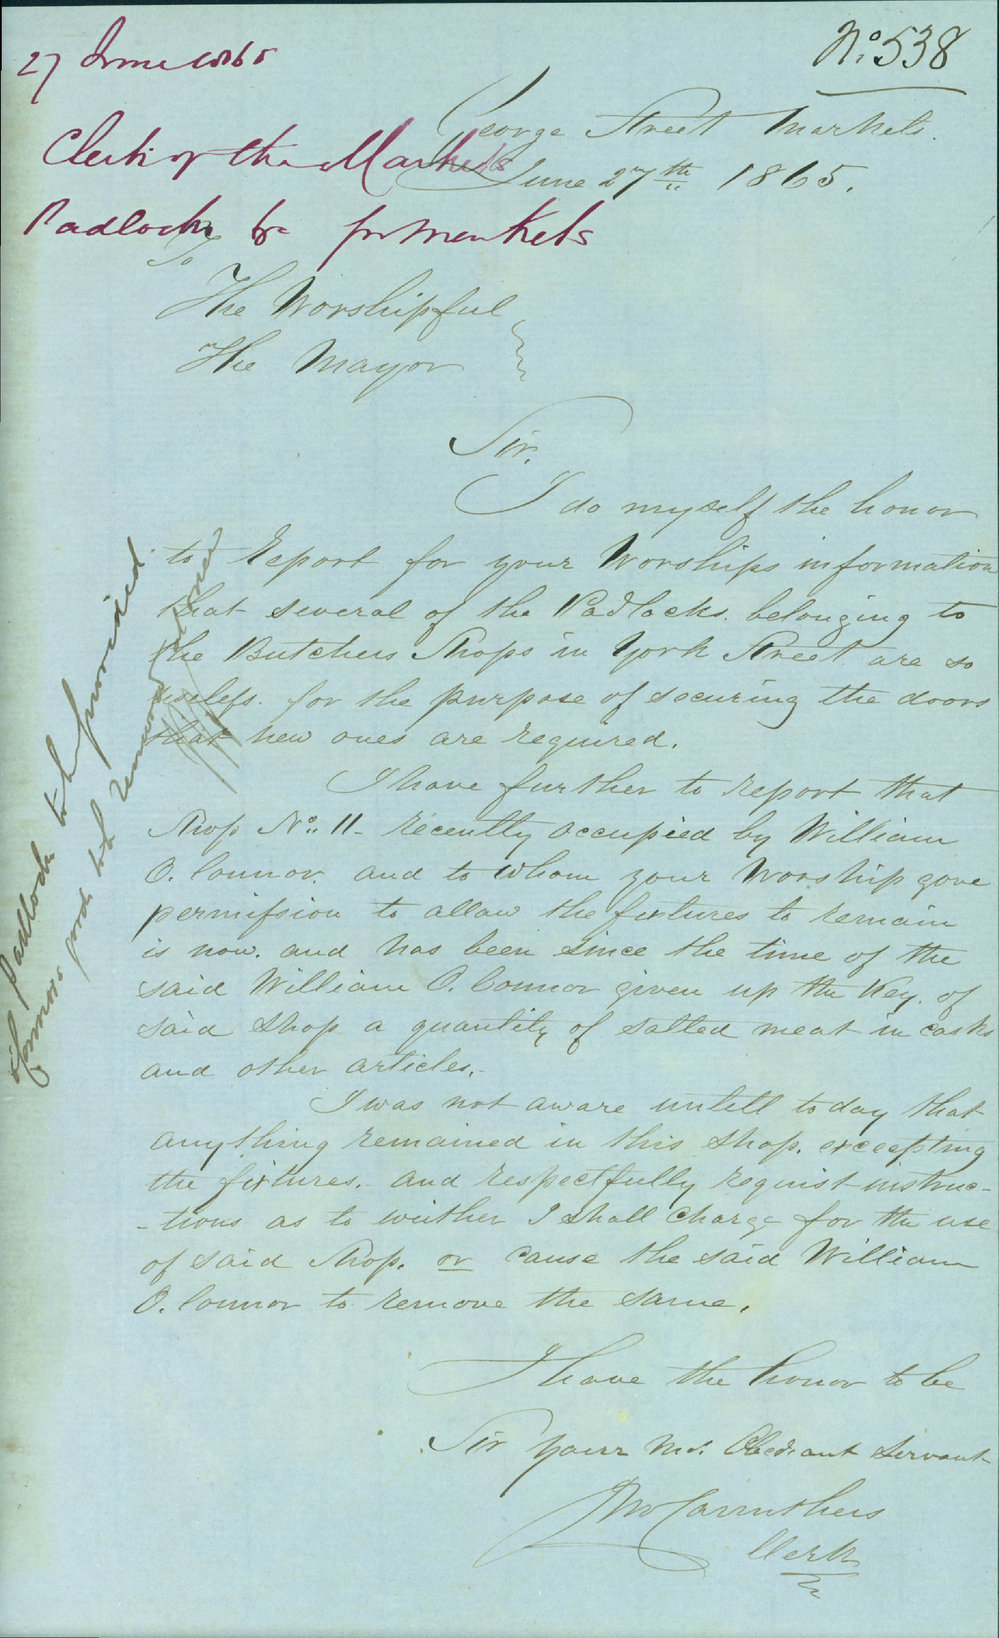 27 June 1865
No. 538
George Street Markets.
June 27th 1865.
Clerk of the Markets
Padlocks &c for Markets
To
The Worshipful
The Mayor
Sir.
I do myself the honor
to Report for your Worships information
that several of the Padlocks. belonging to
the Butchers Shops in York Street. are so
useless. for the purpose of securing the doors
that new ones are required.
I have further to report that
Shop No. 11 - recently occupied by William
O. Connor. and to whom your Worship gave
permission to allow the fixtures to remain
is now. and has been since the time of the
said William O. Connor given up the Key. of
said Shop. a quantity of salted meat in casks
and other articles.-
I was not aware untill to day that
anything remained in this shop. excepting
the fixtures.- and respectfully request instruc-
-tions as to wither I shall charge for the use
of said Shop. or cause the said William
O. Connor to remove the same.
I have the honor to be
Sir your Mo. Obediant Servant
Jno Carruthers
Clerk
padlocks to be provided
Connors goods to be removed